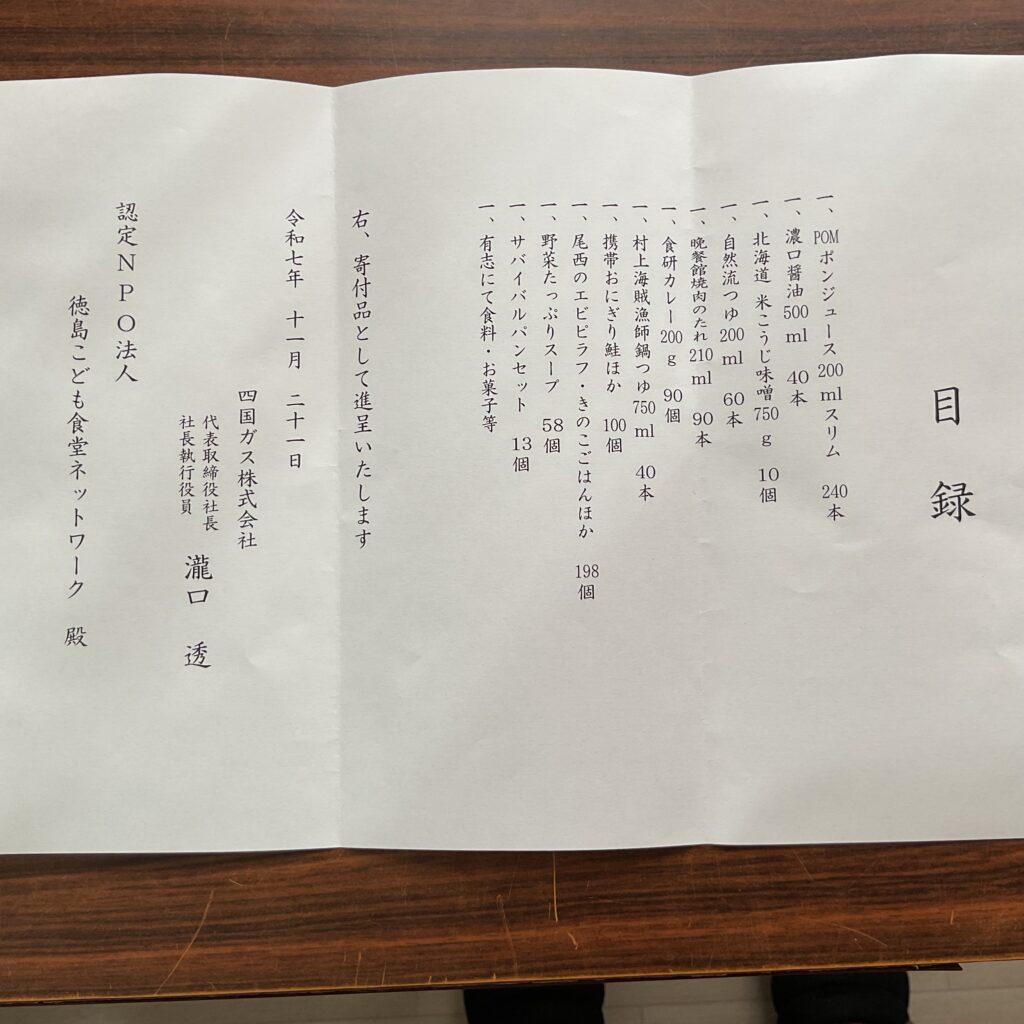 目録
一、POMポンジュース200mlスリム 240本
一、濃口醤油500ml 40本
一、北海道 米こうじ味噌750g 10個
一、自然流つゆ200ml 60本
一、晩餐館焼肉のたれ210ml 90本
一、食研カレー200g 90個
一、村上海賊漁師鍋つゆ750ml 40本
一、携帯おにぎり鮭ほか 100個
一、尾西のエビピラフ・きのこごはんほか 198個
一、野菜たっぷりスープ 58個
一、サバイバルパンセット 13個
一、有志にて食料・お菓子等
右、寄付品として進呈いたします
令和七年 十一月 二十一日
四国ガス株式会社
代表取締役社長
社長執行役員
瀧口 透
認定NPO法人
徳島こども食堂ネットワーク 殿